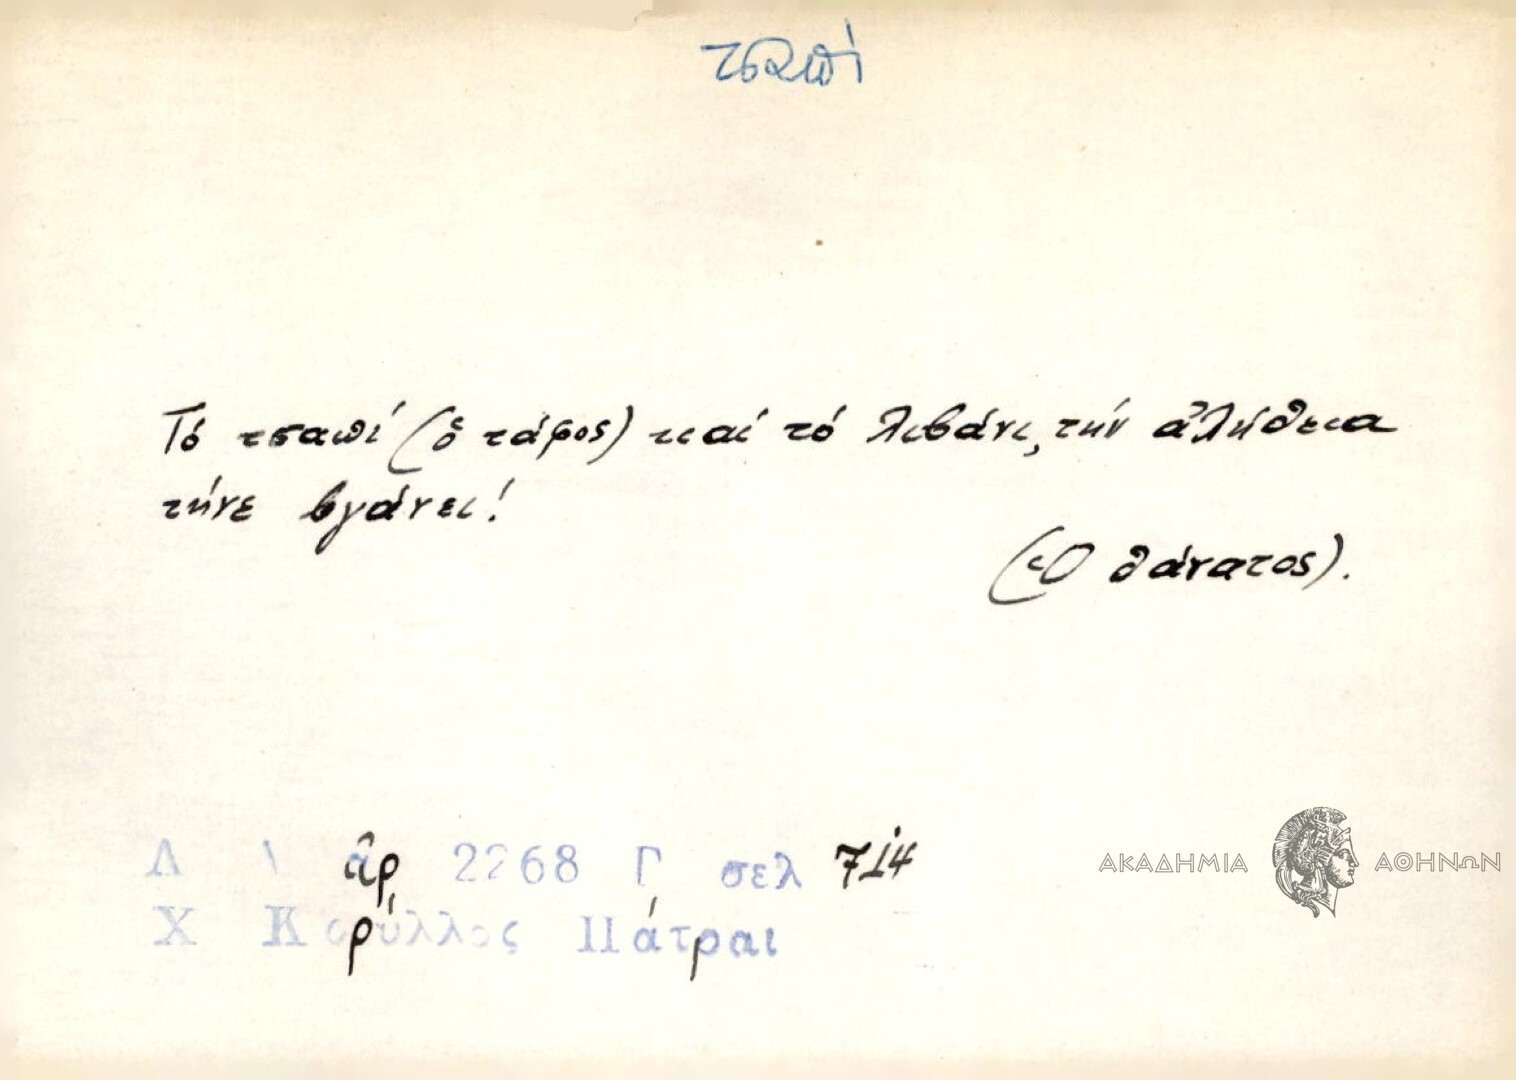 τσαπί
Τό τσαπί (ὁ τάφος) καί τό λιβάνι, τήν ἀλήθεια
τήνε βγάνει!
(Ὁ θάνατος).
Λ Α ἀρ 2268 Γ σελ 714
Χ Κορύλλος Πάτραι
ΑΚΑΔΗΜΙΑ ΑΘΗΝΩΝ